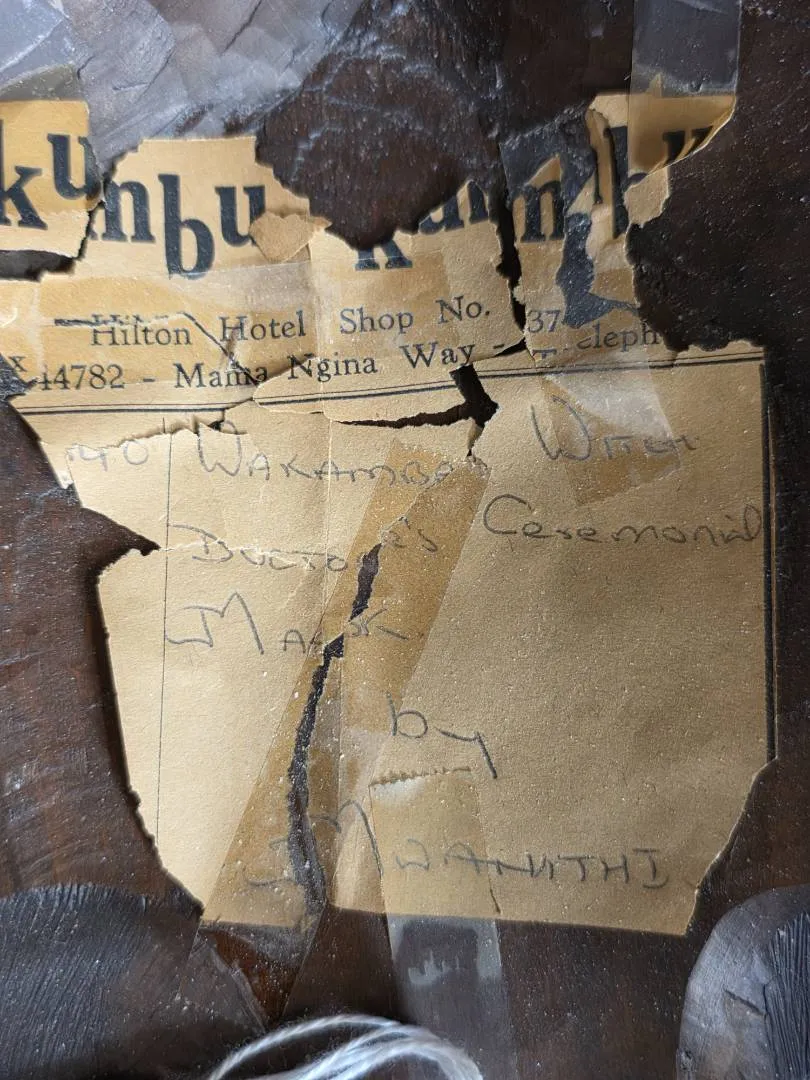 kumbu kumbu
Hilton Hotel Shop No. 37
x 44782 - Mama Ngina Way - Teleph
40 WAKAMBA WITCH
DOCTOR'S CEREMONIAL
MASK
by
MWANITHI